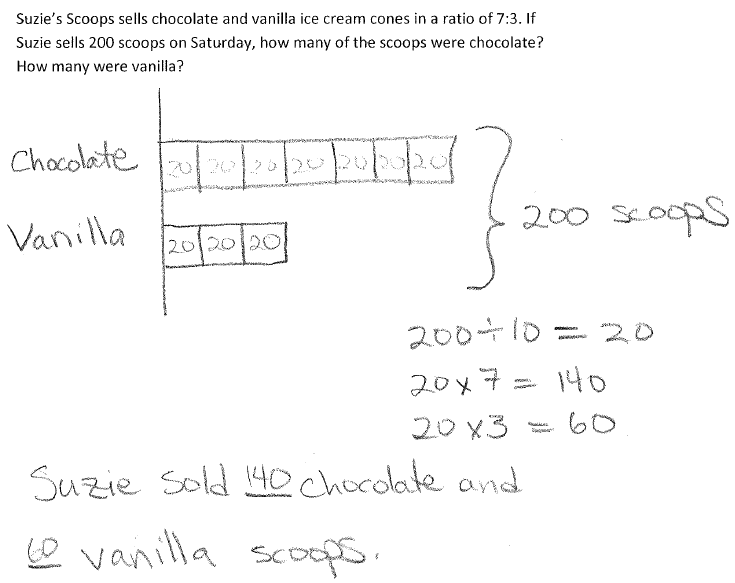 Suzie’s Scoops sells chocolate and vanilla ice cream cones in a ratio of 7:3. If
Suzie sells 200 scoops on Saturday, how many of the scoops were chocolate?
How many were vanilla?
Chocolate 20 20 20 20 20 20 20
Vanilla 20 20 20
200 scoops
200÷10 = 20
20x7 = 140
20x3 = 60
Suzie sold 140 chocolate and
60 vanilla scoops.